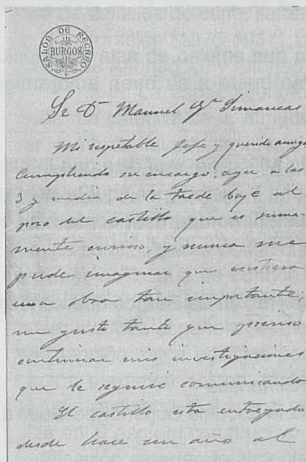 SALON DE RECREO
BURGOS
Sr Dn Manuel Gª Simancas
Mi respetable Jefe y querido amigo
Cumpliendo su encargo, ayer a las
3 y media de la tarde baje al
pozo del castillo que es suma
mente curioso, y nunca me
pude imaginar que existiera
una obra tan importante;
me gustó tanto que pienso
continuar mis investigaciones
que le seguiré comunicando
El castillo esta entregado
desde hace un año al